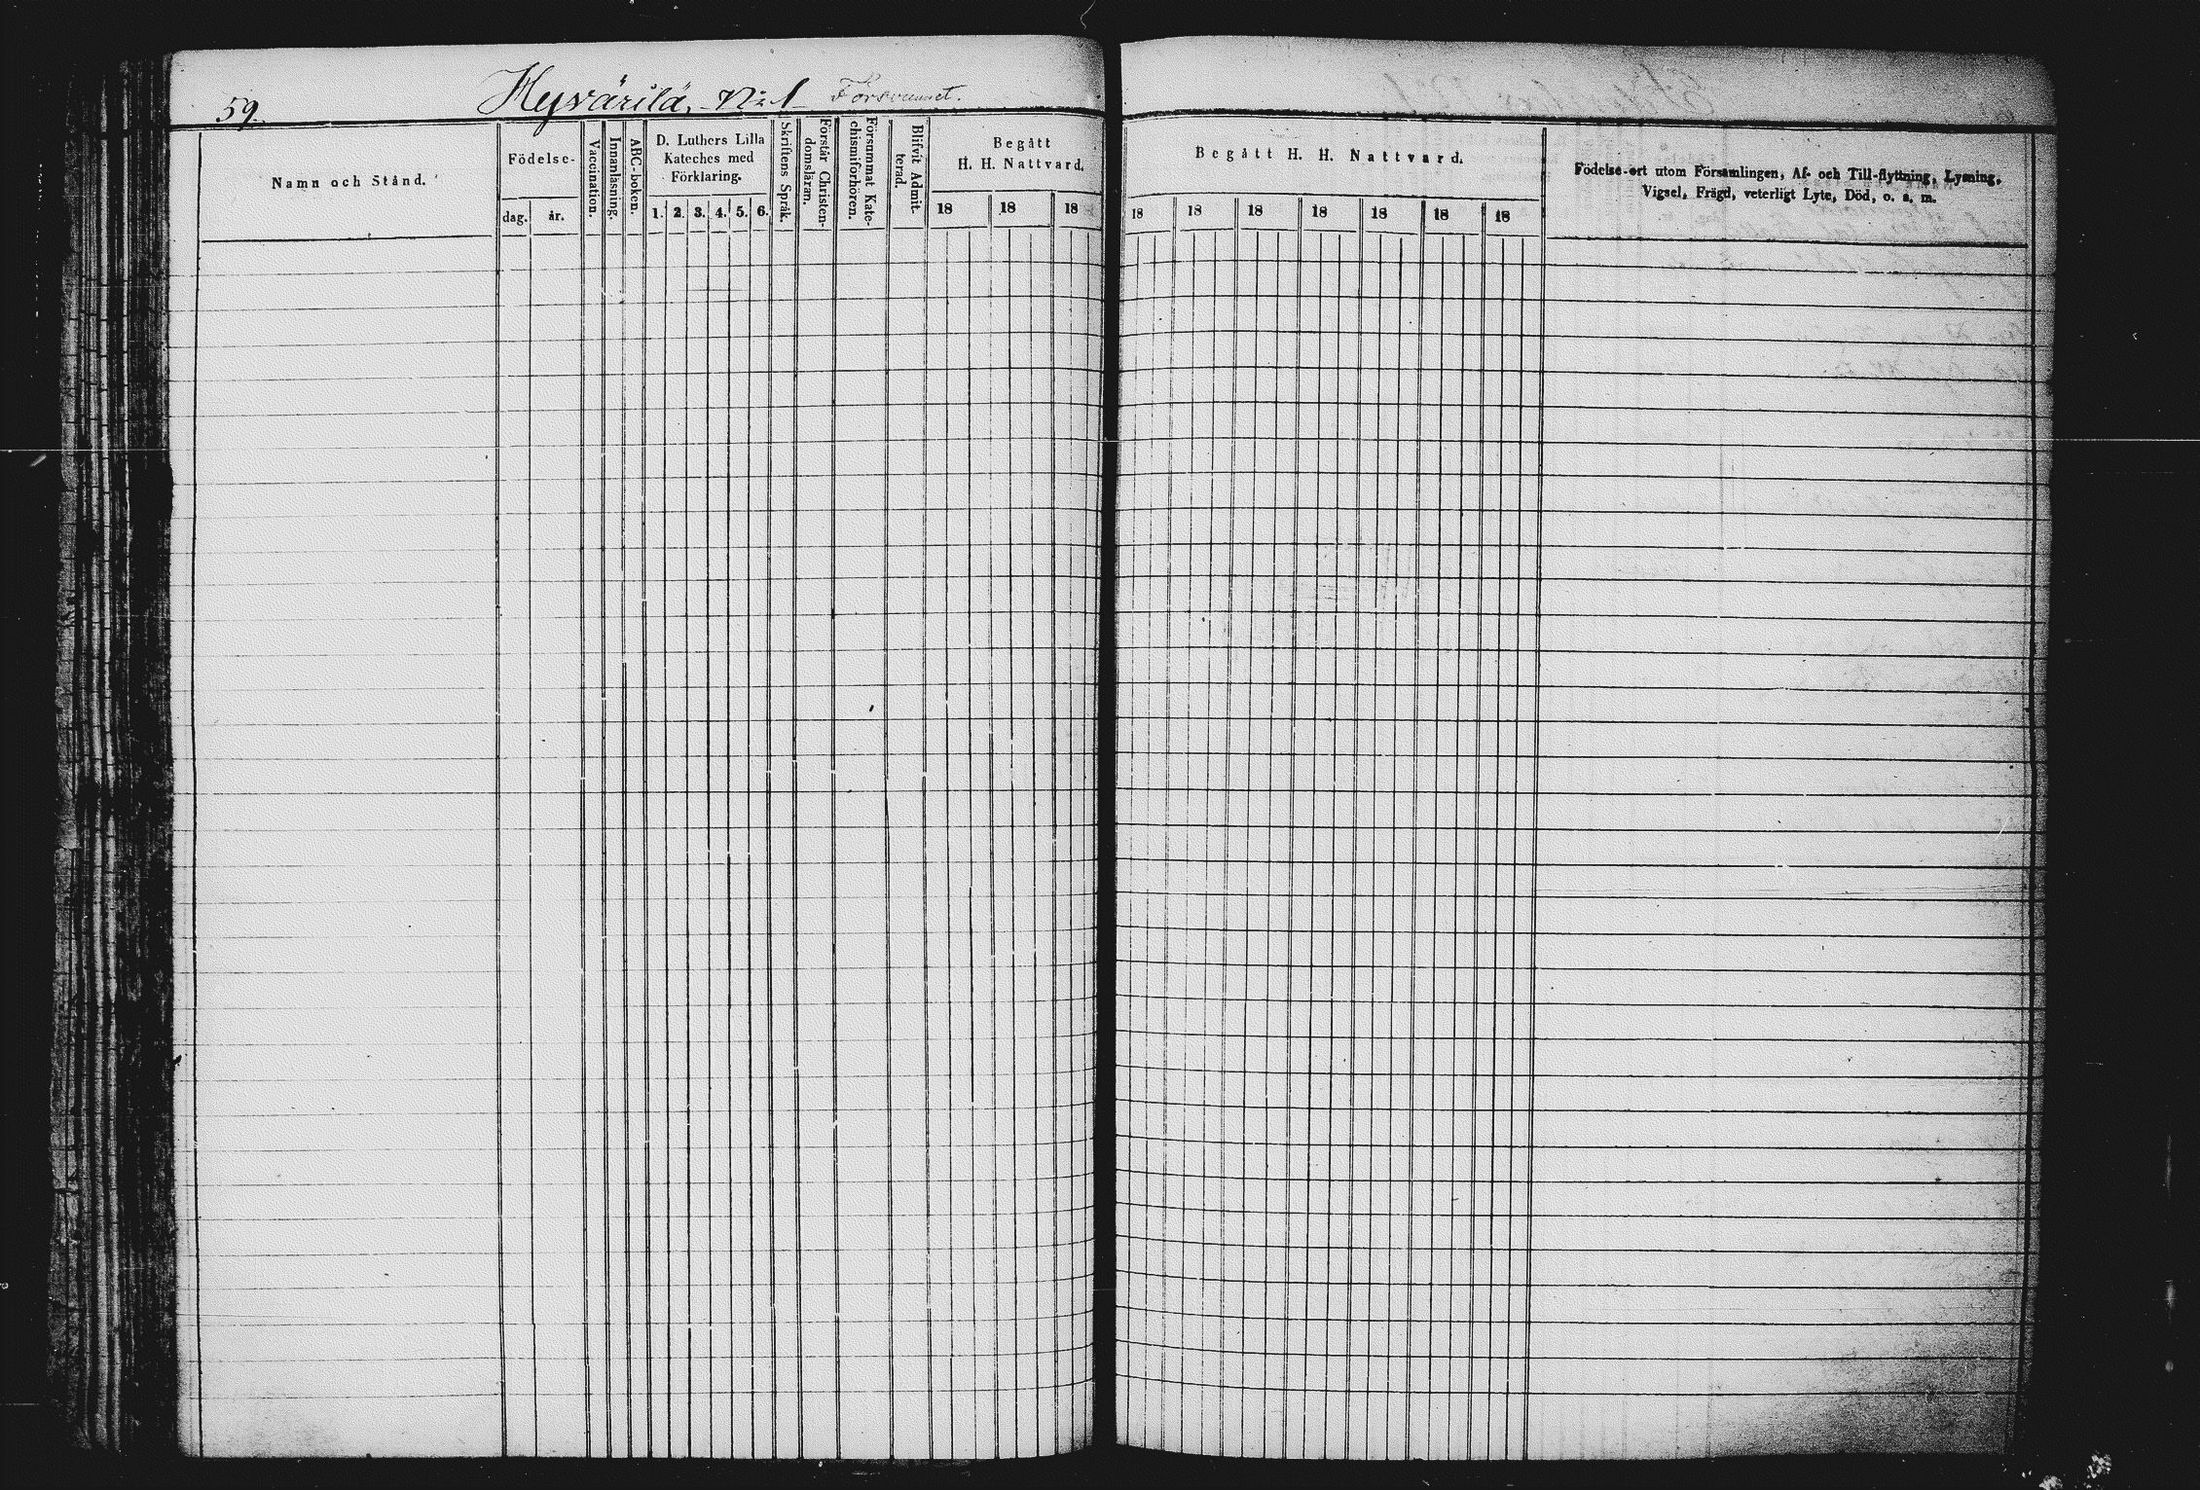 59.
Hyvärilä, No 1 Försvunnet.
Namn och Stånd.
Födelse-
dag. år.
Vaccination.
Innanläsning.
ABC-boken.
D. Luthers Lilla
Kateches med
Förklaring.
1. 2. 3. 4. 5. 6.
Skriftens Språk.
Förstår Christen-
domsläran.
Försummat Kate-
chismiförhören.
Blifvit Admit-
terad.
Begått
H. H. Nattvard.
18 18 18
Begått H. H. Nattvard.
18 18 18 18 18 18 18
Födelse-ort utom Församlingen, Af- och Till-flyttning, Lysning,
Vigsel, Frägd, veterligt Lyte, Död, o. s. m.